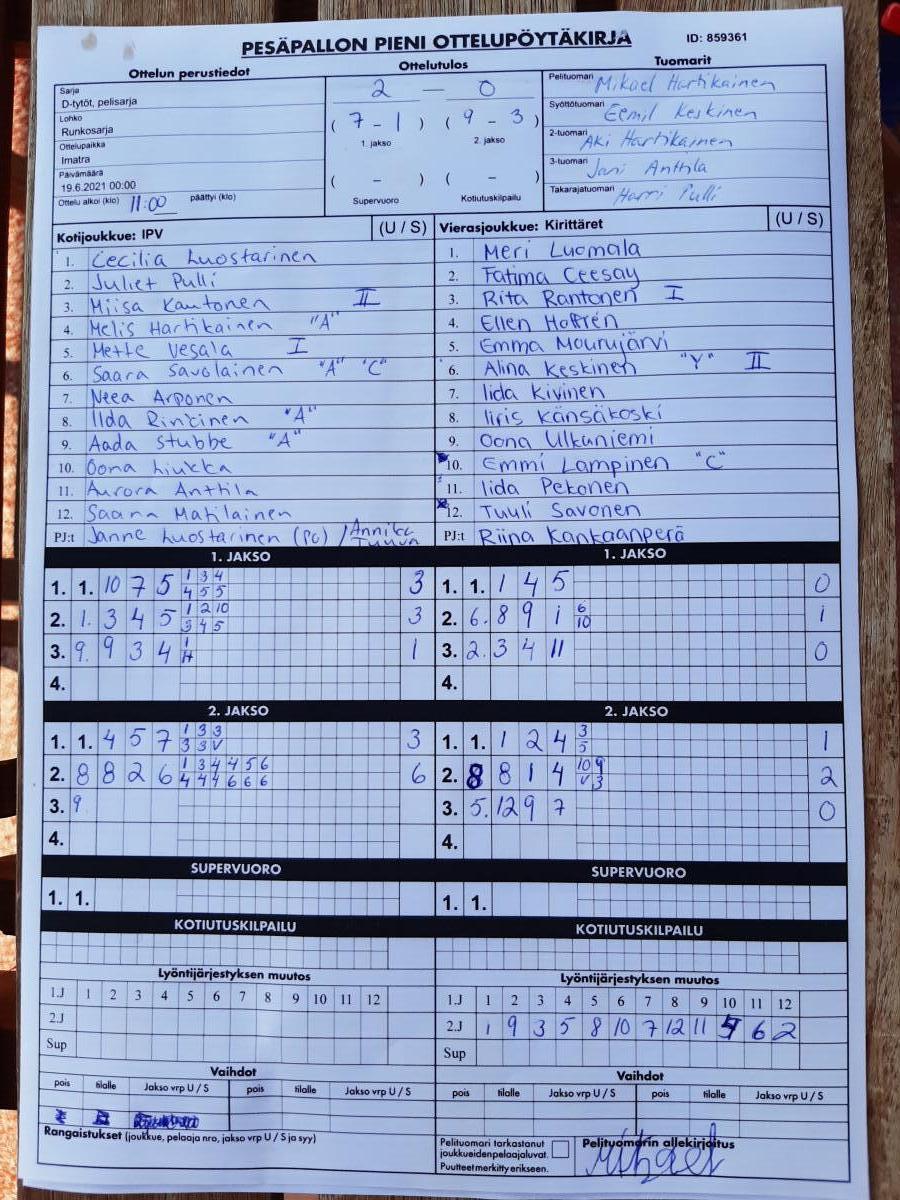 PESÄPALLON PIENI OTTELUPÖYTÄKIRJA ID: 859361
Ottelun perustiedot Ottelutulos Tuomarit
Sarja
D-tytöt, pelisarja
Lohko
Runkosarja
Ottelupaikka
Imatra
Päivämäärä
19.6.2021 00:00
Ottelu alkoi (klo) 11:00 päättyi (klo)
2 — 0
( 7 - 1 ) ( 9 - 3 )
1. jakso 2. jakso
( - ) ( - )
Supervuoro Kotiutuskilpailu
Pelituomari Mikael Hartikainen
Syöttötuomari Eemil Keskinen
2-tuomari Aki Hartikainen
3-tuomari Jani Anttila
Takarajatuomari Harri Pulli
Kotijoukkue: IPV (U / S)
1. Cecilia Luostarinen
2. Juliet Pulli
3. Miisa Kautonen II
4. Melis Hartikainen "A"
5. Mette Vesala I
6. Saara Savolainen "A" "C"
7. Neea Arponen
8. Ilda Rintinen "A"
9. Aada Stubbe "A"
10. Oona Liukka
11. Aurora Anttila
12. Saana Matilainen
PJ:t Janne Luostarinen (PO) / Annika
Vierasjoukkue: Kirittäret (U / S)
1. Meri Luomala
2. Fatima Ceesay
3. Rita Rantonen I
4. Ellen Hoffrén
5. Emma Mourujärvi
6. Alina Keskinen "Y" II
7. Iida Kivinen
8. Iiris Känsäkoski
9. Oona Ulkuniemi
10. Emmi Lampinen "C"
11. Iida Pekonen
12. Tuuli Savonen
PJ:t Riina Kankaanperä
1. JAKSO
1. 1. 10 7 5 1 3 4 3
4 5 5
2. 1. 3 4 5 1 2 10 3
3 4 5
3. 9. 9 3 4 1 1
H
4.
1. JAKSO
1. 1. 1 4 5 0
2. 6. 8 9 1 6 1
10
3. 2. 3 4 11 0
4.
2. JAKSO
1. 1. 4 5 7 1 3 3 3
3 3 V
2. 8 8 2 6 1 3 4 4 5 6 6
4 4 4 6 6 6
3. 9
4.
2. JAKSO
1. 1. 1 2 4 3 1
5
2. 8 8 1 4 10 9 2
V 3
3. 5. 12 9 7 0
4.
SUPERVUORO
1. 1.
SUPERVUORO
1. 1.
KOTIUTUSKILPAILU
KOTIUTUSKILPAILU
Lyöntijärjestyksen muutos
1.J 1 2 3 4 5 6 7 8 9 10 11 12
2.J
Sup
Lyöntijärjestyksen muutos
1.J 1 2 3 4 5 6 7 8 9 10 11 12
2.J 1 9 3 5 8 10 7 12 11 4 6 2
Sup
Vaihdot
pois tilalle Jakso vrp U / S pois tilalle Jakso vrp U / S
Vaihdot
pois tilalle Jakso vrp U / S pois tilalle Jakso vrp U / S
Rangaistukset (joukkue, pelaaja nro, jakso vrp U / S ja syy)
Pelituomari tarkastanut
joukkueidenpelaajaluvat.
Puutteetmerkitty erikseen.
Pelituomarin allekirjoitus